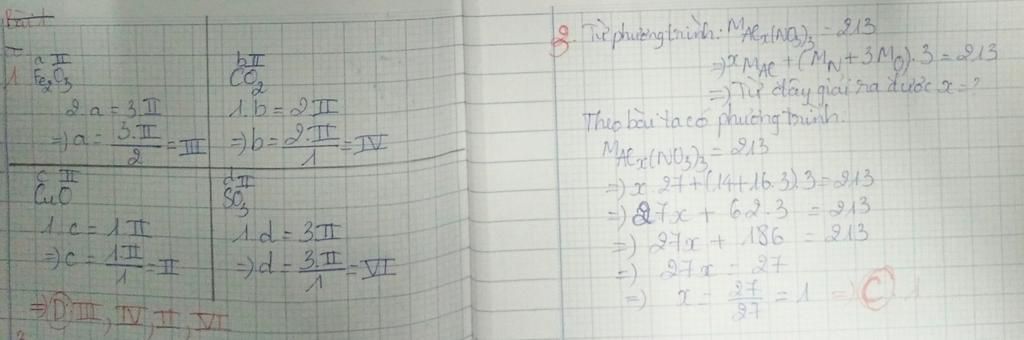 Bài 1
1
a II
Fe₂O₃
2.a = 3.II
=> a = 3.II/2 = III
b II
CO₂
1.b = 2.II
=> b = 2.II/1 = IV
c II
CuO
1.c = 1.II
=> c = 1.II/1 = II
d II
SO₃
1.d = 3.II
=> d = 3.II/1 = VI
=> D III, IV, II, VI
8. Từ phương trình: M_Alₓ(NO₃)₃ = 213
=> x M_Al + (M_N + 3M_O).3 = 213
=> Từ đây giải ra được x = ?
Theo bài ta có phương trình.
M_Alₓ(NO₃)₃ = 213
=> x.27 + (14 + 16.3).3 = 213
=> 27x + 62.3 = 213
=> 27x + 186 = 213
=> 27x = 27
=> x = 27/27 = 1 => C 1